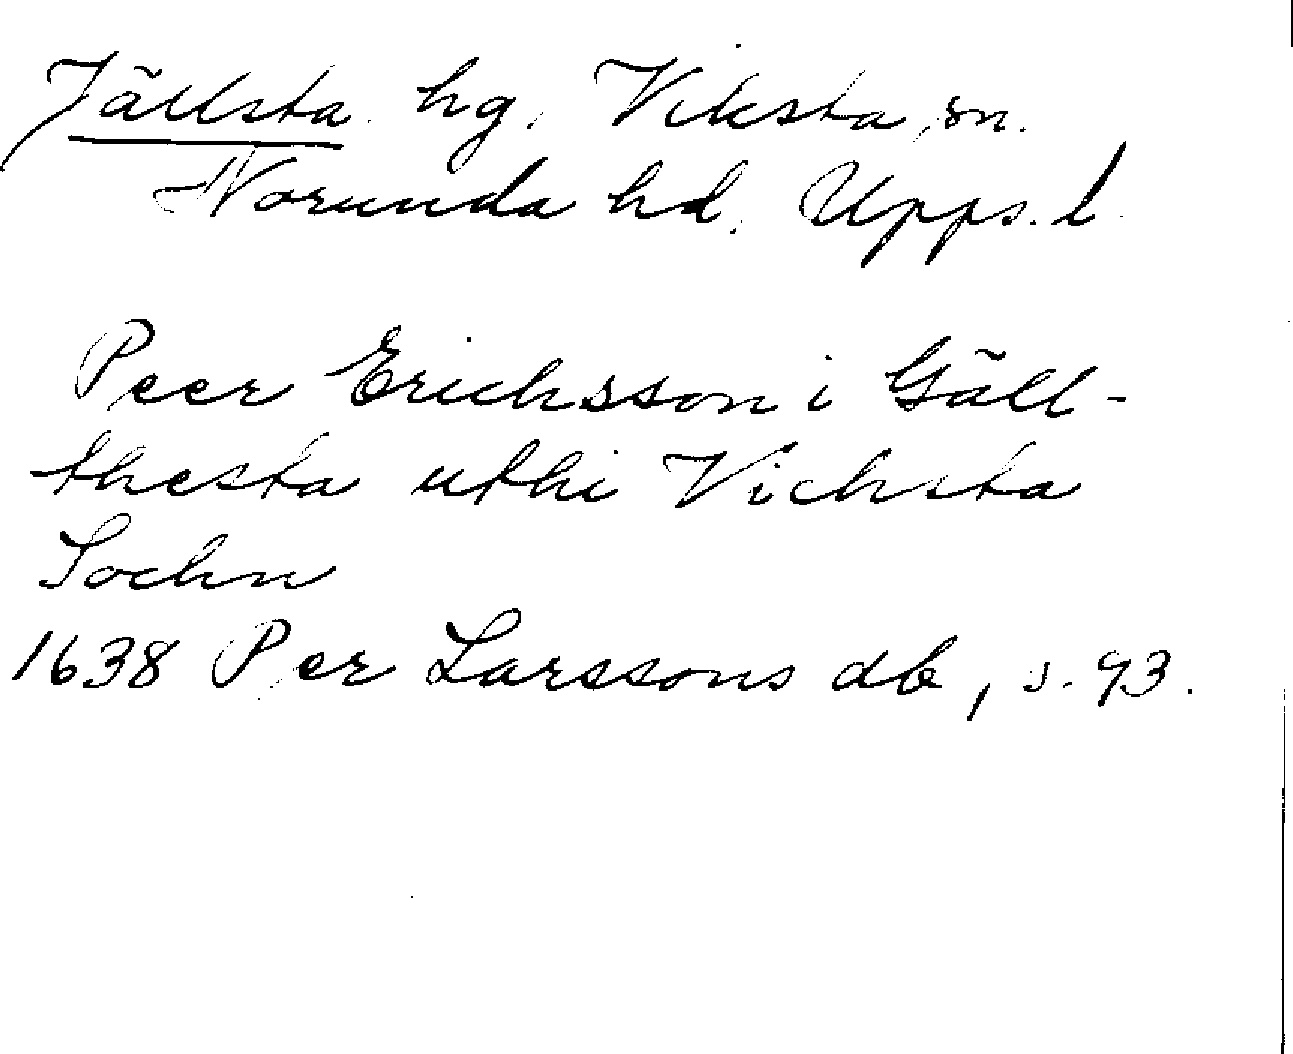 Jällsta hg, Viksta sn.
Norunda hd, Upps. l.
Peer Erichsson i Gäll-
thesta uthi Vichsta
Sochn
1638 Per Larssons db, s. 93.